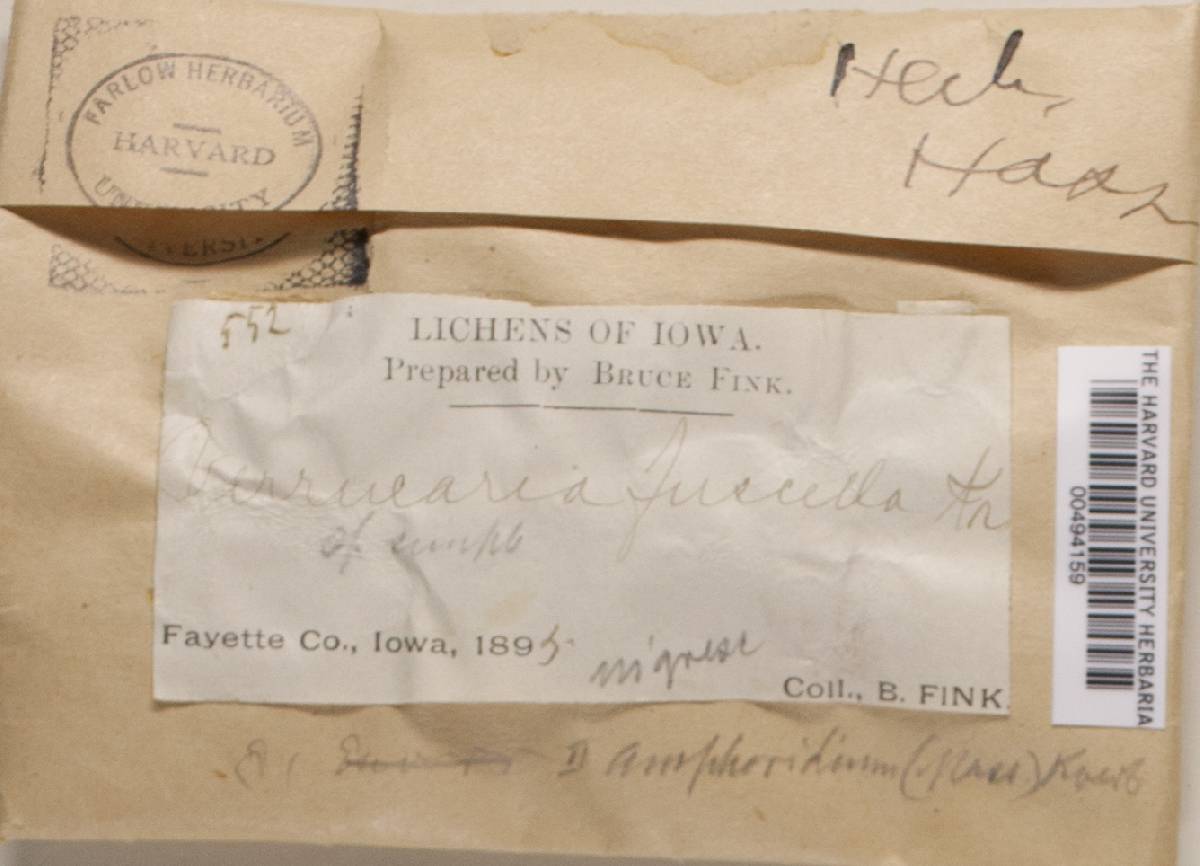 FARLOW HERBARIUM
HARVARD
UNIVERSITY
Herb.
552
LICHENS OF IOWA.
Prepared by BRUCE FINK.
Verrucaria fuscella
Fayette Co., Iowa, 1895
nigresc
Coll., B. FINK.
II Amphoridium (Mass.) Koerb
THE HARVARD UNIVERSITY HERBARIA
00494159